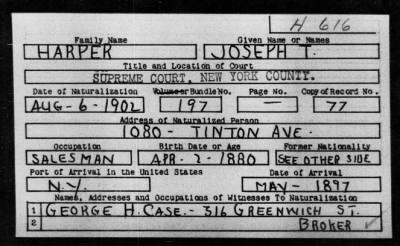 H 616
Family Name Given Name or Names
HARPER JOSEPH T.
Title and Location of Court
SUPREME COURT, NEW YORK COUNTY.
Date of Naturalization Volume or Bundle No. Page No. Copy of Record No.
AUG-6-1902 197 — 77
Address of Naturalized Person
1080- TINTON AVE.
Occupation Birth Date or Age Former Nationality
SALESMAN APR. 2-1880 SEE OTHER SIDE
Port of Arrival in the United States Date of Arrival
N.Y. MAY-1897
Names, Addresses and Occupations of Witnesses To Naturalization
1 GEORGE H. CASE.- 316 GREENWICH ST.
2 BROKER